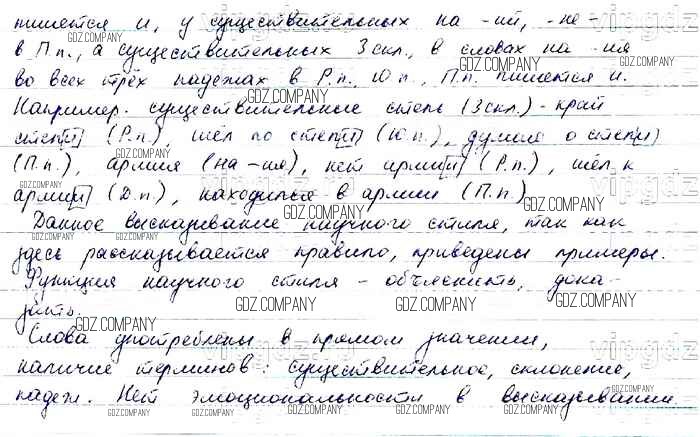 пишется и, у существительных на -ий, -ие -
в П.п., а существительных 3 скл., в словах на -ия
во всех трёх падежах в Р.п., Ю п., П.п. пишется и.
Например: существительные степь (3 скл.) - край
степ[и] (Р.п.), шёл по степ[и] (Ю п.), думаю о степ[и]
(П.п.), армия (на -ия), нет арми[и] (Р.п.), шёл к
арми[и] (Д.п.), находился в армии (П.п.)
Данное высказывание научного стиля, так как
здесь рассказывается правило, приведены примеры.
Функция научного стиля - объяснить, дока-
зать.
Слова употреблены в прямом значении,
наличие терминов: существительное, склонение,
падеж. Нет эмоциональности в высказывании.
GDZ.COMPANY
vipgdz